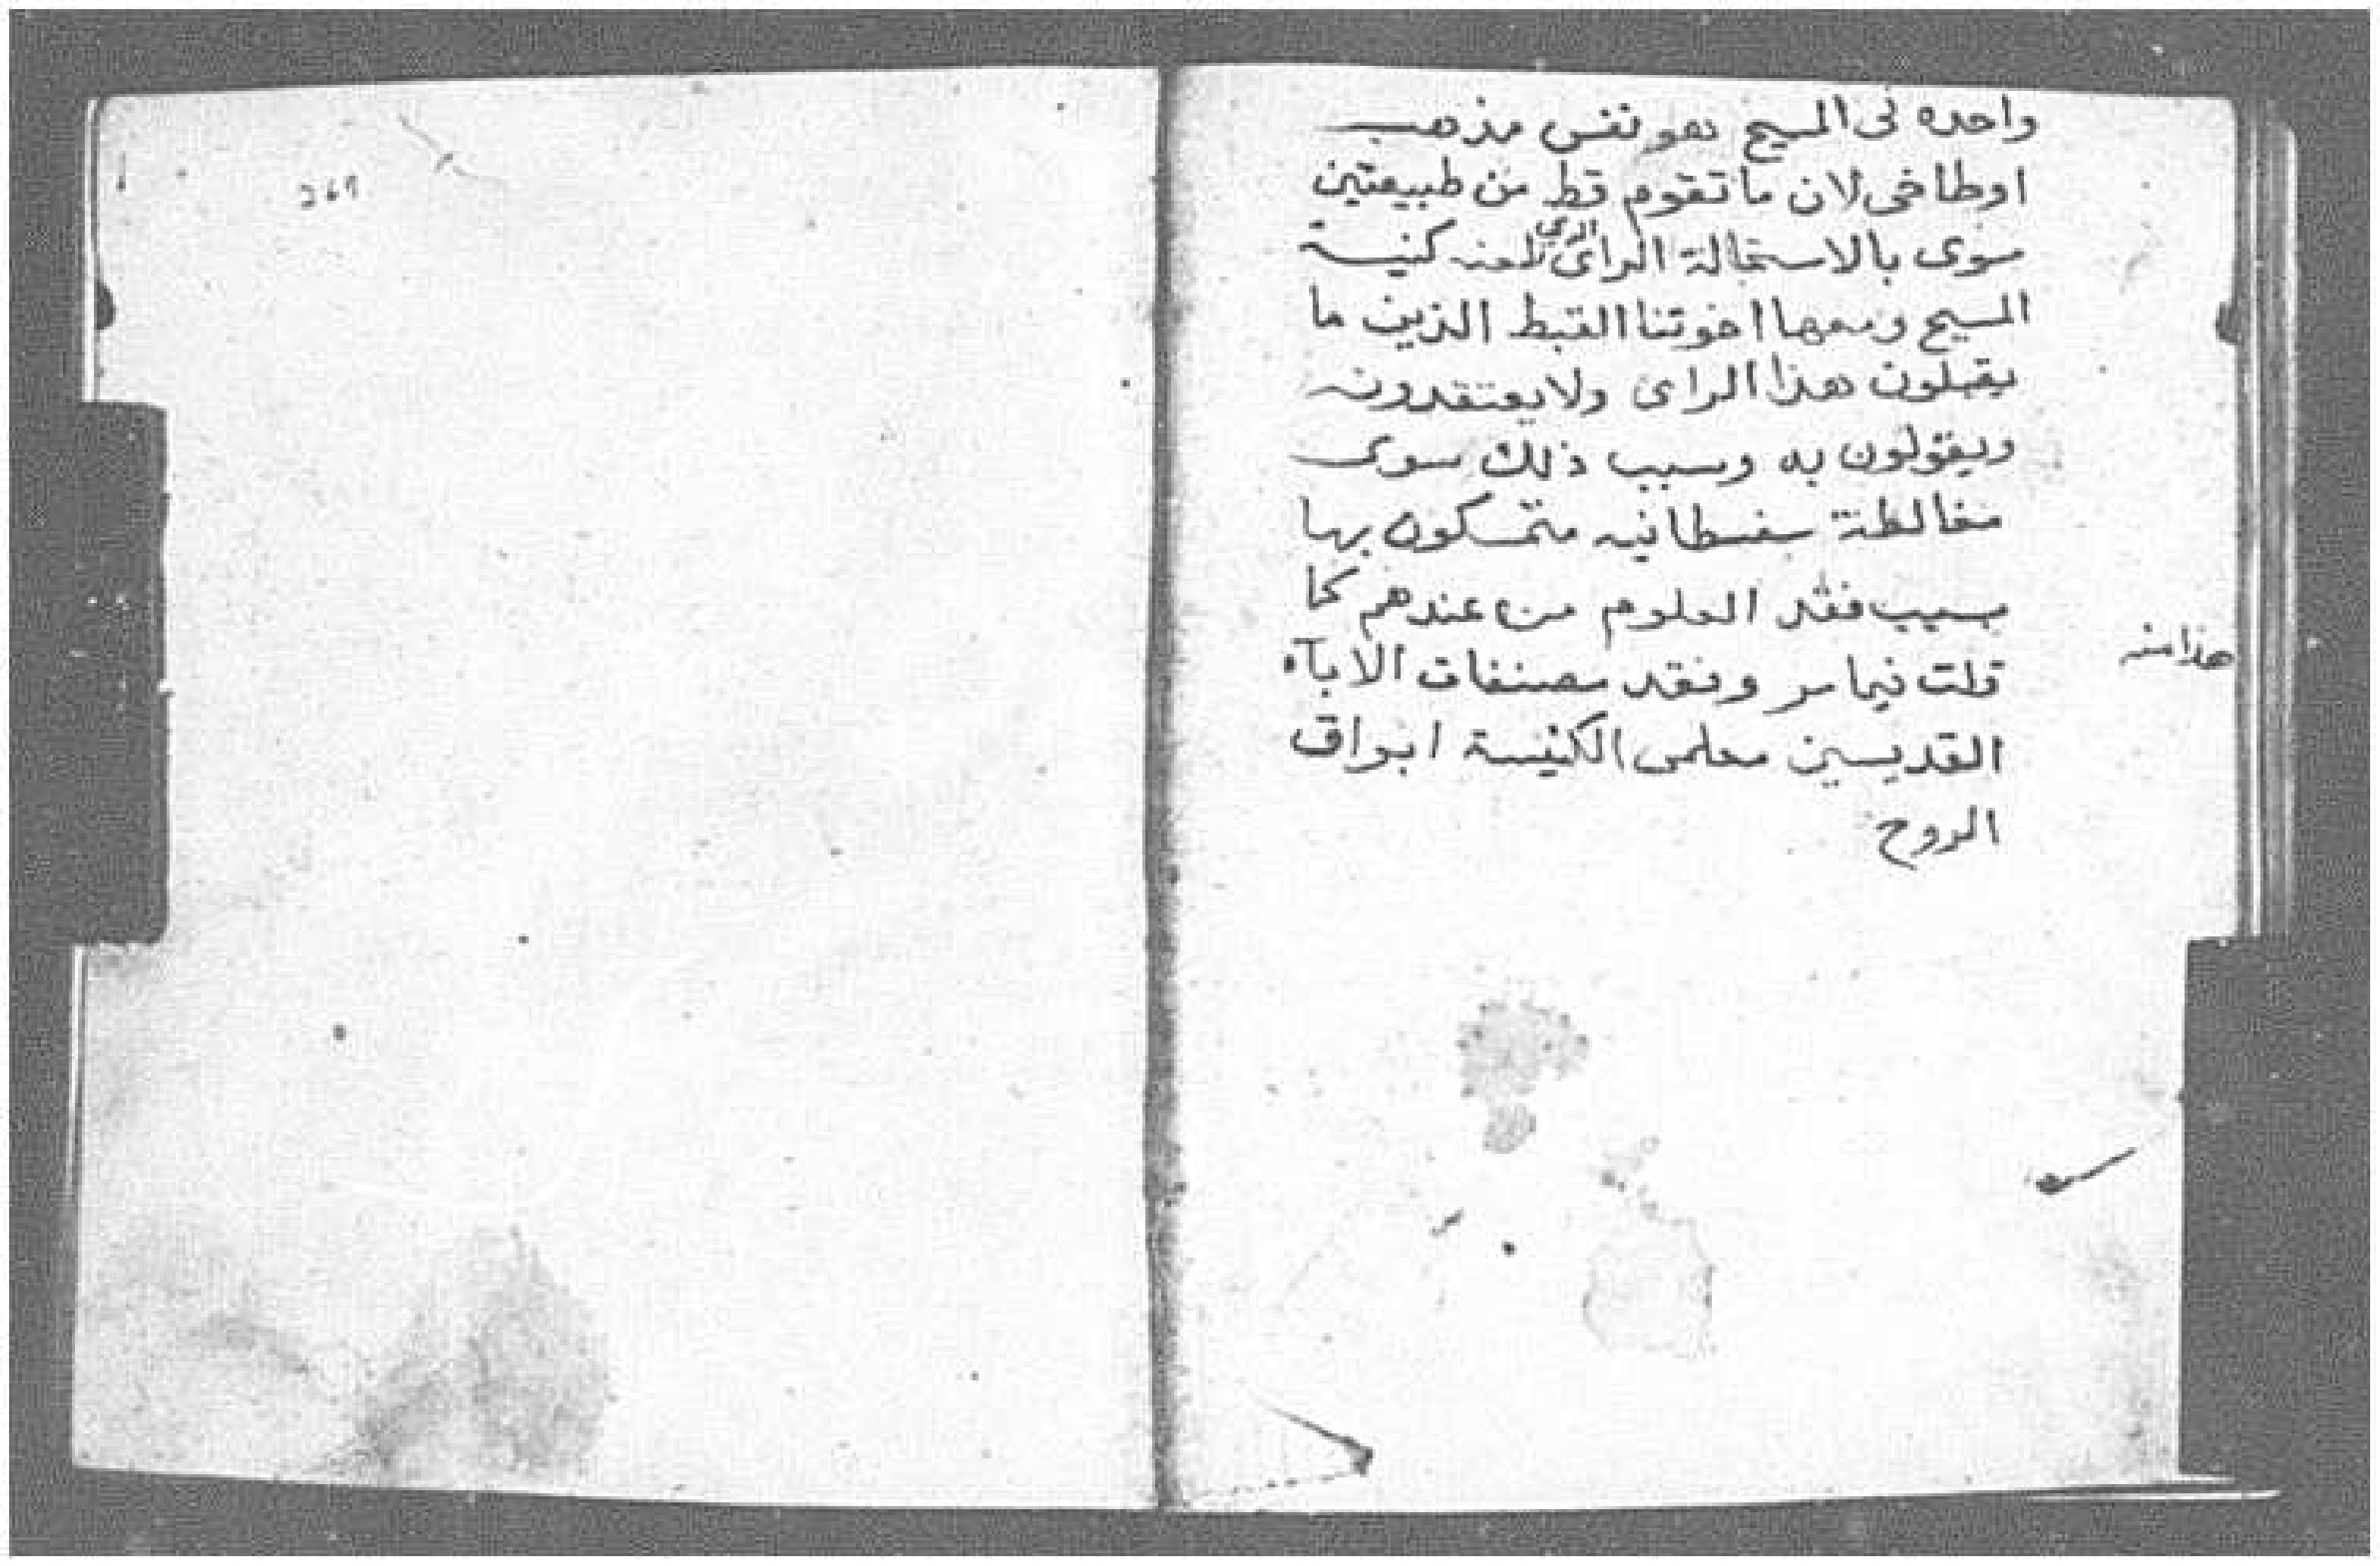 واحده فى المسيح هو نفس مذهب
اوطاخى لان ما تقوم قط من طبيعتين
سوى بالاستحالة الراى الذى تلعنه كنيسة
المسيح ومعها اخوتنا القبط الذين ما
يقبلون هذا الراى ولا يعتقدونه
ويقولون به وسبب ذلك سوى
مغالطة سفسطانيه متمسكون بها
بسبب فقد العلوم من عندهم كما
قلت فيما مر وفقد مصنفات الابآء
القديسين معلمى الكنيسة ابواق
الروح
هذا منه
261